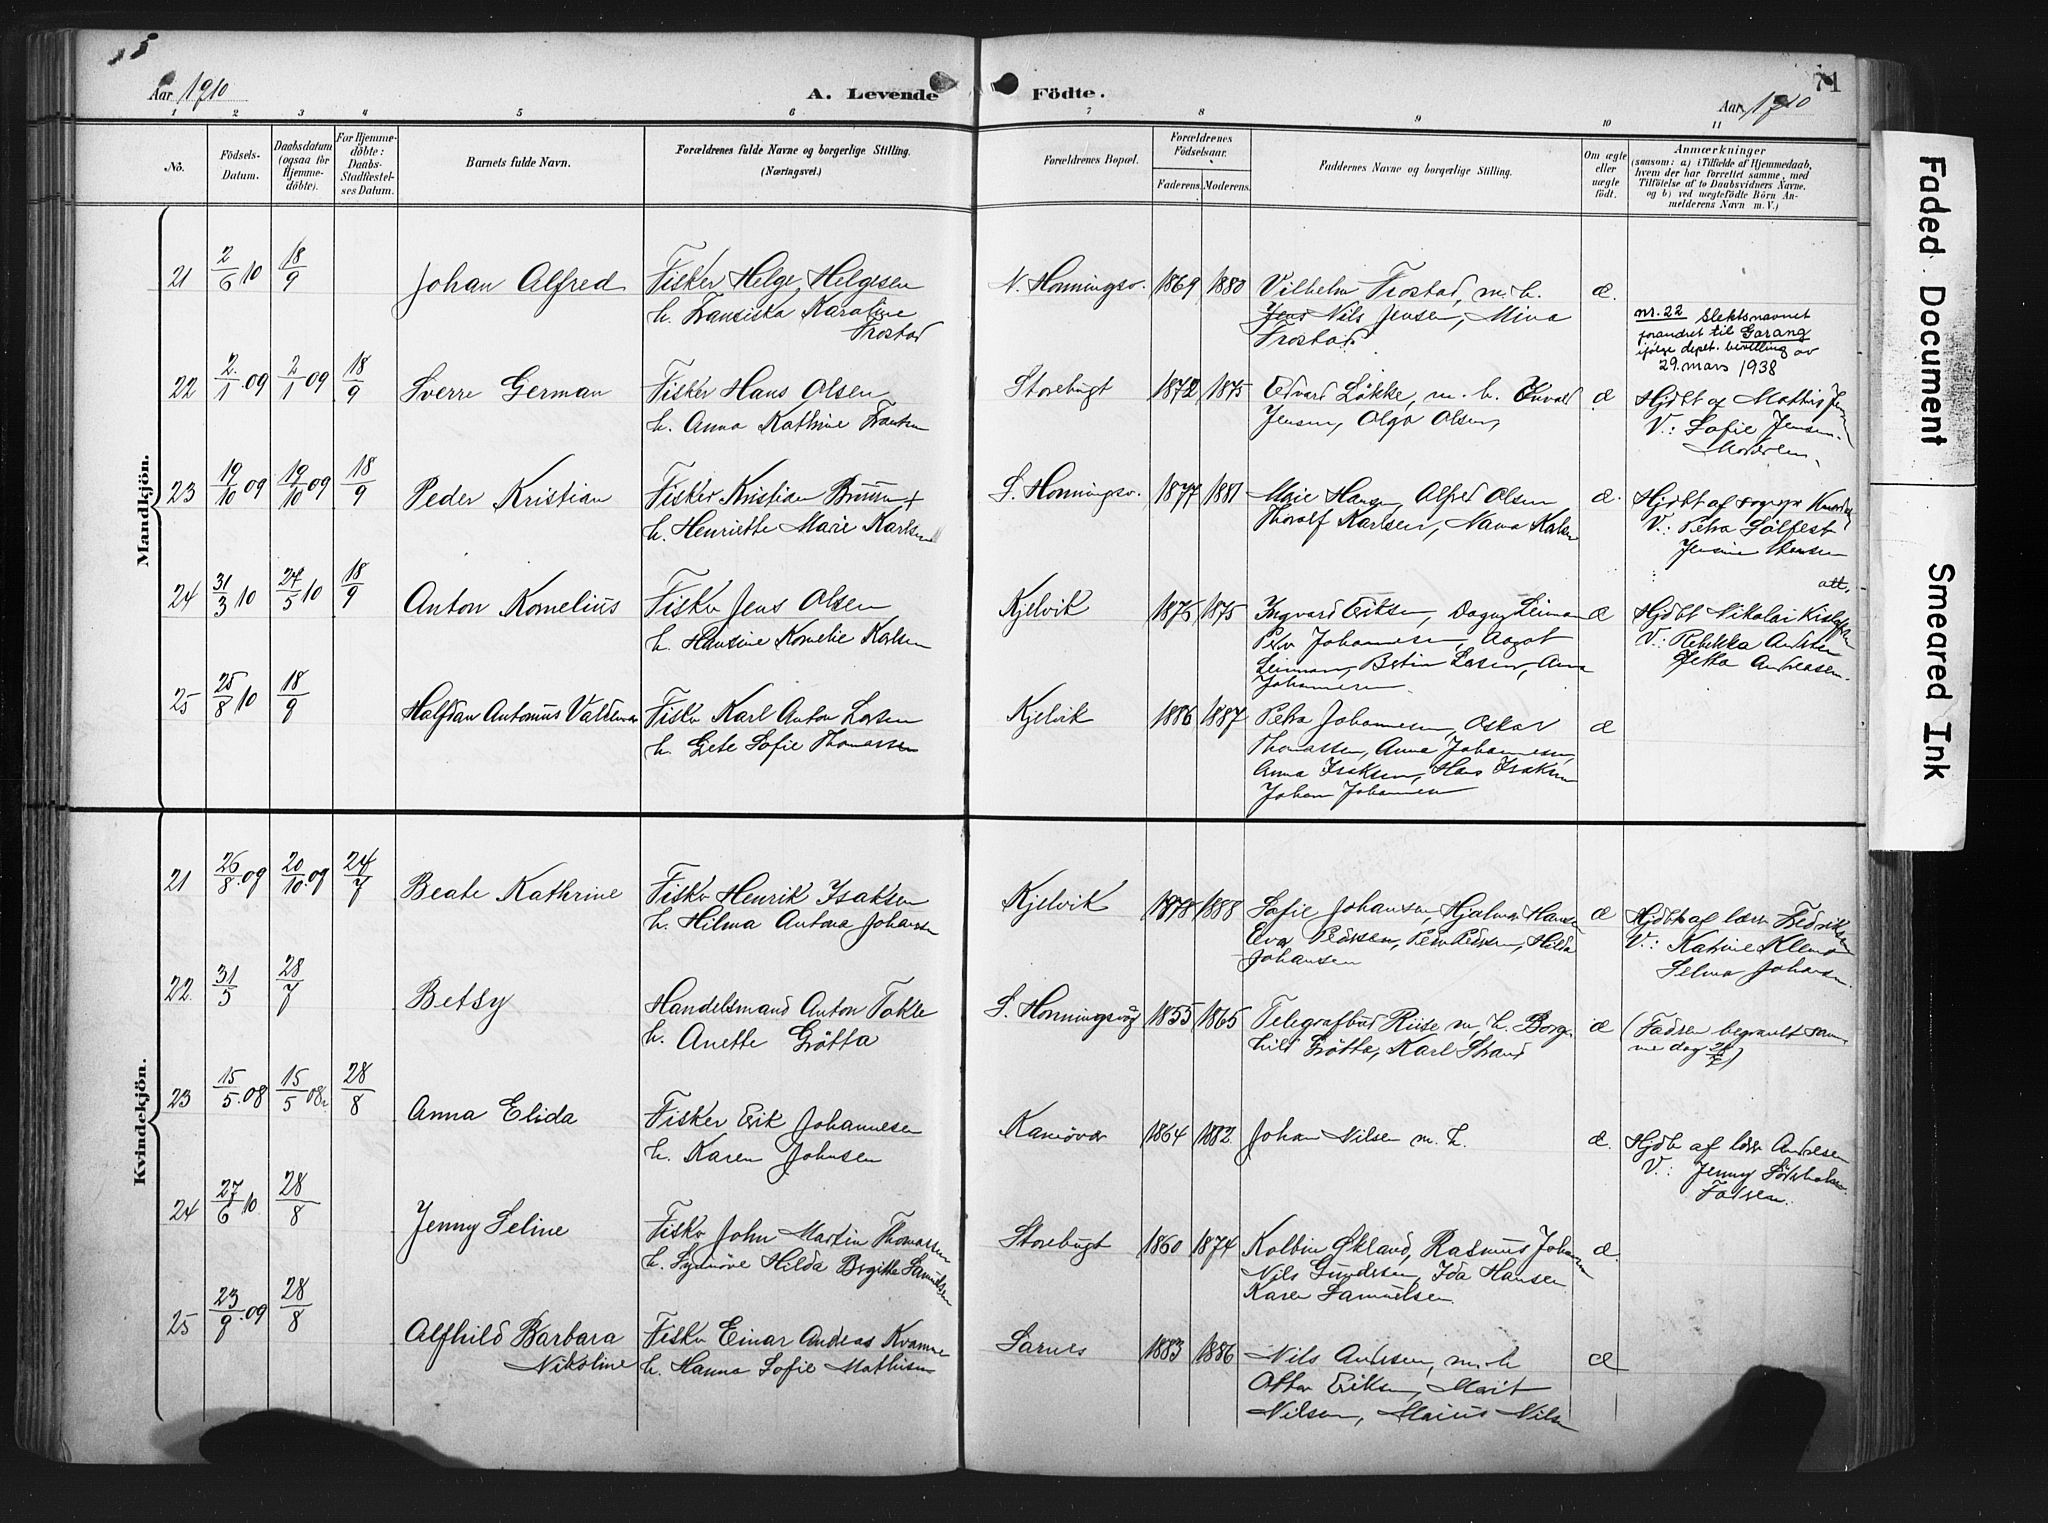 Aar 1910
A. Levende Födte.
71
Aar 1910
1 2 3 4 5 6 7 8 9 10 11
No.
Födsels-Datum.
Daabsdatum (ogsaa for Hjemmedöbte).
For Hjemmedöbte: Daabs-Stadfæstelses Datum.
Barnets fulde Navn.
Forældrenes fulde Navne og borgerlige Stilling. (Næringsvei.)
Forældrenes Bopæl.
Forældrenes Födselsaar.
Faderens. Moderens.
Faddernes Navne og borgerlige Stilling.
Om ægte eller uægte födt.
Anmærkninger
(saasom: a) i Tilfælde af Hjemmedaab,
hvem der har forrettet samme, med
Tilföielse af to Daabsvidners Navne.
og b) ved uægtefödte Börn An-
melderens Navn m. V.)
Mandkjön.
21 2/6 10 18/9 Johan Alfred Fisker Helge Helgesen N. Honningsv. 1869 1880 Vilhelm Trostad, m. h. æ.
h. Fransiska Karoline Jens Nils Jensen, Mina
Trostad Trostad
nr. 22 Slektsnavnet
forandret til Garang
ifølge dept. bevilling av
29. mars 1938
22 2/1 09 2/1 09 18/9 Sverre German Fisker Hans Olsen Storebugt 1872 1875 Edvard Løkke, m. h. æ Hjdbt af Mathis
h. Anna Kathrine Jensen, Olga Olsen, V.: Sofie Jensen.
Moderen.
23 19/10 09 19/10 09 18/9 Peder Kristian Fisker Kristian Bruun + S. Honningsv. 1877 1881 Marie Hansen, Alfred Olsen æ. Hjdbt af
h. Henriette Marie Karlsen Thoralf Karlsen, V.: Petra Sølfest
24 31/3 10 24/5 10 18/9 Anton Kornelius Fisker Jens Olsen Kjelvik 1876 1875 Ingvard Eriksen, Dagny Leiman æ Hjdbt Nikolai
att,
h. Hansine Kornelie Karlsen Peder Johannesen, Aagot V.: Rebekka
Leiman, Betin Larsen, Anna Andreasen.
Johannesen
25 25/8 10 18/9 Halfdan Antonius Valdemar Fisker Karl Anton Larsen Kjelvik 1886 1887 Petra Johannesen, Oskar æ
h. Gete Sofie Thomassen Thomassen, Anna Johannesen,
Anna Isaksen, Hans Isaksen
Johan Johannesen
Kvindekjön.
21 26/8 09 20/10 09 24/7 Beate Kathrine Fisker Henrik Isaksen Kjelvik 1878 1888 Sofie Johansen, Hjalmar Hansen æ Hjdbt af lærer Fredriksen
h. Hilma Antona Johansen Eva Pedersen, Peder Pedersen, Hilda V.: Katrine
Johansen Selma Johansen.
22. 31/5 28/7 Betsy Handelsmand Anton Takle S. Honningsvåg 1855 1865 Telegrafbud Riise m. h. Borg- æ (Faderen begravet sam-
h. Anette Grøtta hild Grøtta, Karl Strand me dag 28/7)
23 15/5 08 15/5 08 28/8 Anna Elida Fisker Erik Johannesen Kamøver 1864 1882 Johan Nilsen m. h. æ. Hjdb af lærer Andresen
h. Karen Johnsen V.: Jenny
Faderen.
24 27/6 10 28/8 Jenny Seline Fisker John Martin Thomassen Storebugt 1860 1874 Kolbin Økland, Rasmus Johansen æ.
h. Synnøve Hilda Birgitte Samuelsen Nils Gundersen, Ida Hansen
Karen Samuelsen
25 23/9 09 28/8 Alfhild Barbara Fisker Einar Andreas Kvamme Sarnes 1883 1886 Nils Andersen, m. h æ
Nikoline h. Hanna Sofie Mathisen Ottar Eriksen, Marit
Nilsen, Marius Nilsen
Faded Document
Smeared Ink